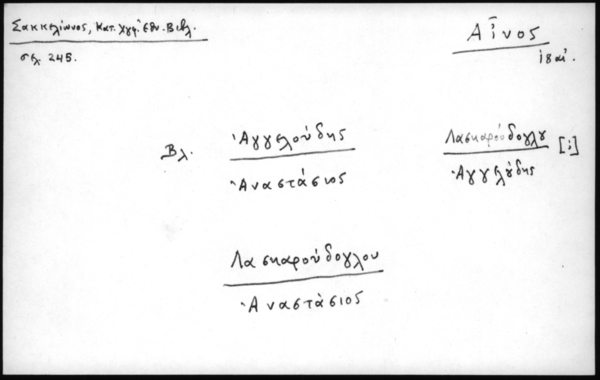 Σακκελίωνος, Κατ. Χγφ. Ἐθν. Βιβλ.
σελ. 245.
Αἶνος
ιβ αἰ.
Βλ.
Ἀγγελούδης
Ἀναστάσιος
Λασκαρούδογλου [;]
Ἀγγελούδης
Λασκαρούδογλου
Ἀναστάσιος